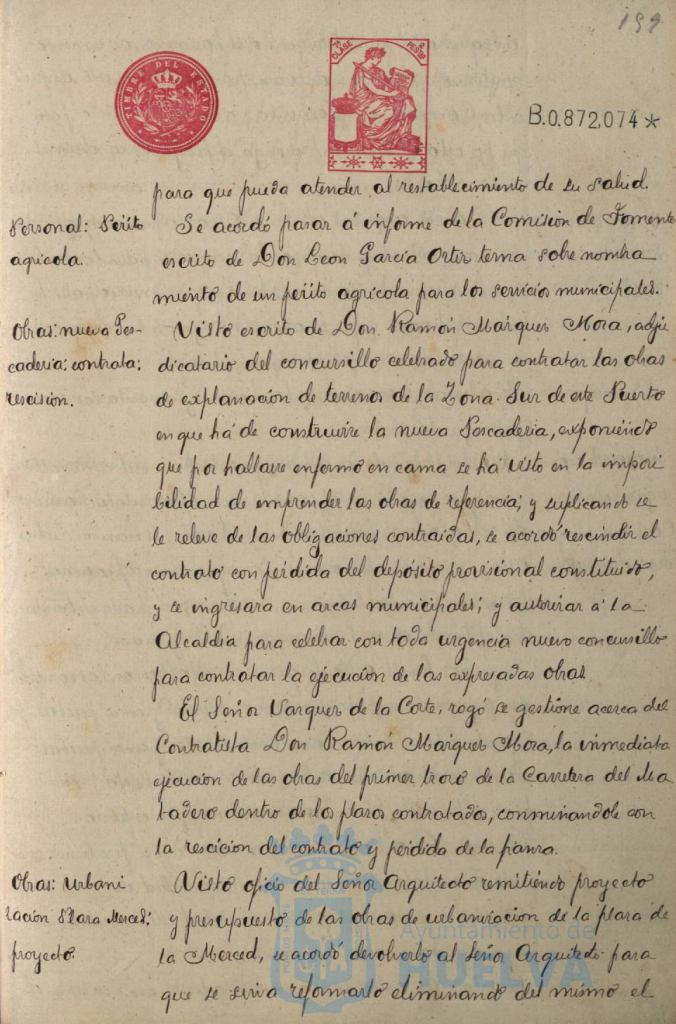 199
TIMBRE DEL ESTADO
7ª CLASE 2 PESETAS
B.0.872,074*
para que pueda atender al restablecimiento de su salud.
Personal: Périto
agricola.
Se acordó pasar á informe de la Comisión de Fomento
escrito de Don Leon Garcia Ortiz terna sobre nombra
miento de un périto agrícola para los servicios municipales.
Obras: nueva Pes-
caderia; contrata;
rescisión.
Visto escrito de Don Ramón Marques Mora, adju
dicatario del concursillo celebrado para contratar las obras
de explanación de terrenos de la Zona Sur de este Puerto
en que há de construirse la nueva Pescaderia, exponiendo
que por hallarse enfermo en cama se há visto en la imposi
bilidad de emprender las obras de referencia; y suplicando se
le releve de las obligaciones contraidas, se acordó rescindir el
contrato con pérdida del depósito provisional constituido,
y se ingresara en arcas municipales; y autorizar á la
Alcaldia para celebrar con toda urgencia nuevo concursillo
para contratar la ejecución de las expresadas obras.
El Señor Vazquez de la Corte, rogó se gestione acerca del
Contratista Don Ramón Marques Mora, la inmediata
ejecucion de las obras del primer trozo de la Carretera del Ma
tadero dentro de los plazos contratados, conminandole con
la rescicion del contrato y perdida de la fianza.
Obras: Urbani
zación Plaza Merced;
proyecto.
Visto oficio del Señor Arquitecto remitiendo proyecto
y presupuesto de las obras de urbanizacion de la plaza de
la Merced, se acordó devolverlo al Señor Arquitecto para
que se sirva reformarlo eliminando del mismo el
Ayuntamiento de
HUELVA